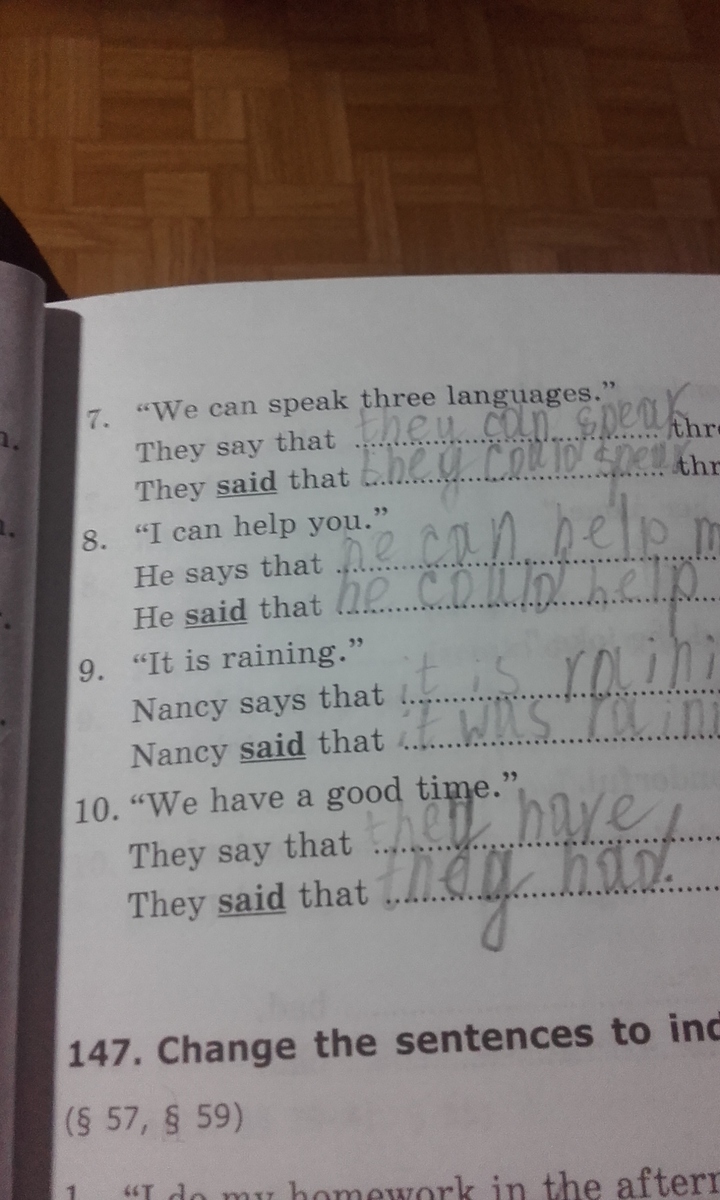 7. “We can speak three languages.”
They say that they can speak thr
They said that they could speak thr
8. “I can help you.”
He says that he can help m
He said that he could help
9. “It is raining.”
Nancy says that it is raini
Nancy said that it was raini
10. “We have a good time.”
They say that they have
They said that they had
147. Change the sentences to ind
(§ 57, § 59)
1. “I do my homework in the aftern